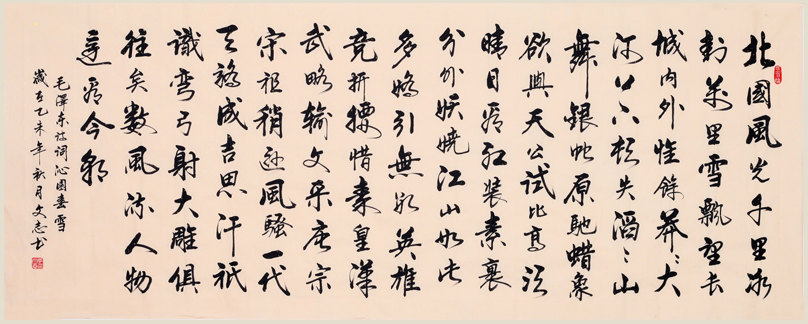 北國風光千里冰
封萬里雪飄望長
城内外惟餘莽〻大
河上下頓失滔〻山
舞銀蛇原馳蜡象
欲與天公試比高須
晴日看紅裝素裹
分外妖嬈江山如此
多嬌引無數英雄
竞折腰惜秦皇漢
武略输文采唐宗
宋祖稍遜風騷一代
天驕成吉思汗祇
識弯弓射大雕俱
往矣數風流人物
還看今朝
毛澤东詩词沁園春雪
歲在乙未年秋月文志书